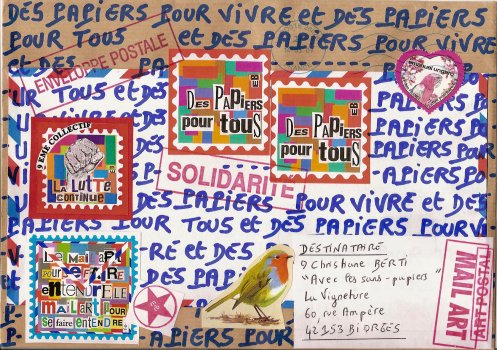 DES PAPIERS POUR VIVRE ET DES PAPIERS
POUR TOUS ET DES PAPIERS POUR VIVRE
ENVELOPPE POSTALE
ET DES PA
emanuel ungaro
UR TOUS ET DES
DES PAPIERS pour tous
DES PAPIERS pour tous
PAPIERS PO
APIERS POUR
9 EME COLLECTIF
LA LUTTE
CONTINUE
SOLIDARITE
DES PAPIERS POUR VIVRE ET DES
PAPIERS POUR TOUS ET DES PAPIERS POUR V
RE ET DES PA
DES PAPI
Le MAiL aRt
pour SE FAIRE
entendre LE
mail art pour
se faire entendre
DESTINATAIRE
9 Christiane BERTI
"Avec les sans-papiers"
La Vigneture
60, rue Ampère
42153 RIORGES
MAIL ART
ART POSTAL
P- APIERS POUR